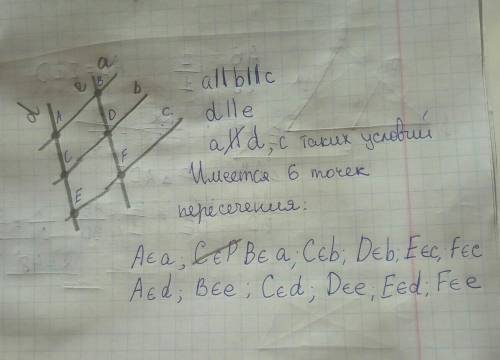 a
e B b
d A D c
C F
E
a||b||c
d||e
a∦d, с таких условий
Имеется 6 точек
пересечения:
A∈a; B∈a; C∈b; D∈b; E∈c, F∈c
A∈d; B∈e; C∈d; D∈e, E∈d; F∈e